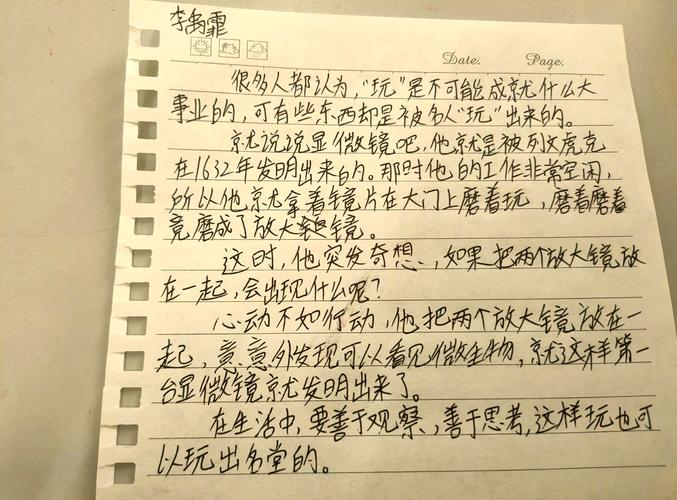 李禹霏
Date. Page.
很多人都认为，“玩”是不可能成就什么大
事业的，可有些东西却是被名人“玩”出来的。
就说说显微镜吧，他就是被列文虎克
在1632年发明出来的。那时他的工作非常空闲，
所以他就拿着镜片在大门上磨着玩，磨着磨着
竟磨成了放大镜。
这时，他突发奇想，如果把两个放大镜放
在一起，会出现什么呢？
心动不如行动，他把两个放大镜放在一
起，意意外发现可以看见微生物，就这样第一
台显微镜就发明出来了。
在生活中，要善于观察，善于思考，这样玩也可
以玩出名堂的。